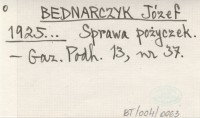 BEDNARCZYK Józef
1925... Sprawa pożyczek.
- Gaz. Podh. 13, nr 37.
BT/004/0063